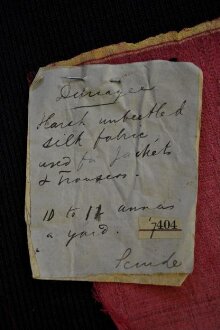 Durrayee
Harsh unbeetled
silk fabric
used for Jackets
& Trousers.
10 to 11 annas
a yard.
7404
Scinde